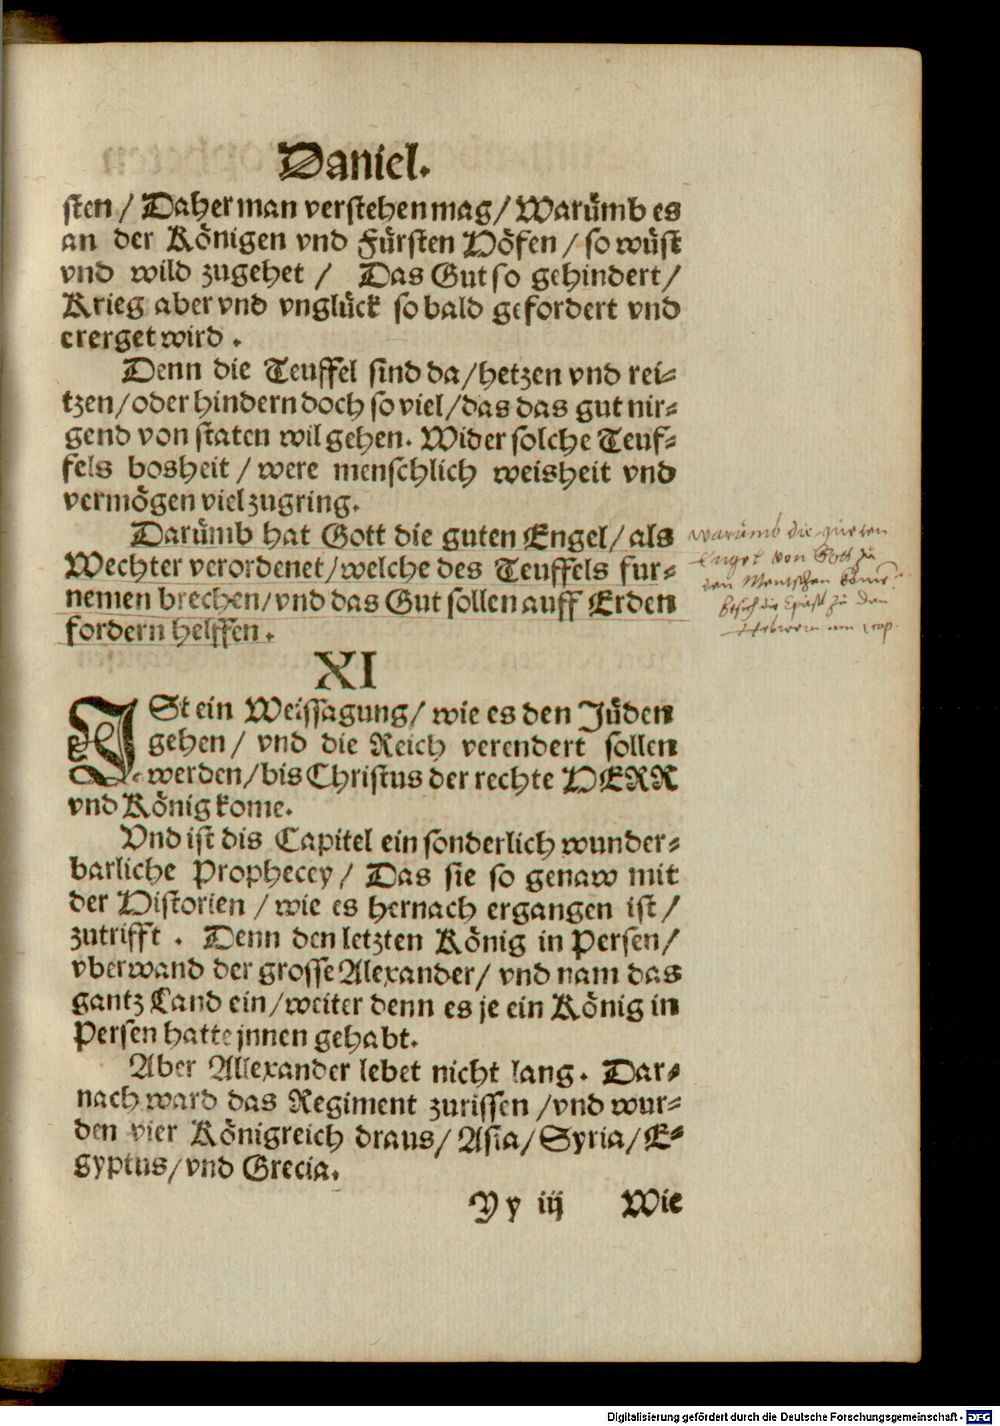 Daniel.
sten / Daher man verstehen mag / Warümb es
an der Königen vnd Fürsten Höfen / so wüst
vnd wild zugehet / Das Gut so gehindert /
Krieg aber vnd vnglück so bald gefordert vnd
ererget wird .
Denn die Teuffel sind da / hetzen vnd rei⸗
tzen / oder hindern doch so viel / das das gut nir⸗
gend von staten wil gehen. Wider solche Teuf⸗
fels bosheit / were menschlich weisheit vnd
vermögen viel zu gring.
Darümb hat Gott die guten Engel / als
Wechter verordenet / welche des Teuffels fur⸗
nemen brechen / vnd das Gut sollen auff Erden
fordern helffen .
warümb die guten
Engel von Gott zu
den Mentschen
besich die Epist zu den
XI
ISt ein Weissagung / wie es den Jüden
gehen / vnd die Reich verendert sollen
werden / bis Christus der rechte HERR
vnd König kome.
Vnd ist dis Capitel ein sonderlich wunder⸗
barliche Prophecey / Das sie so genaw mit
der Historien / wie es hernach ergangen ist /
zutrifft . Denn den letzten König in Persen /
vberwand der grosse Alexander / vnd nam das
gantz Land ein / weiter denn es je ein König in
Persen hatte jnnen gehabt.
Aber Allexander lebet nicht lang . Dar⸗
nach ward das Regiment zurissen / vnd wur⸗
den vier Königreich draus / Asia / Syria / E⸗
gyptus / vnd Grecia.
Yy iij Wie
Digitalisierung gefördert durch die Deutsche Forschungsgemeinschaft - DFG